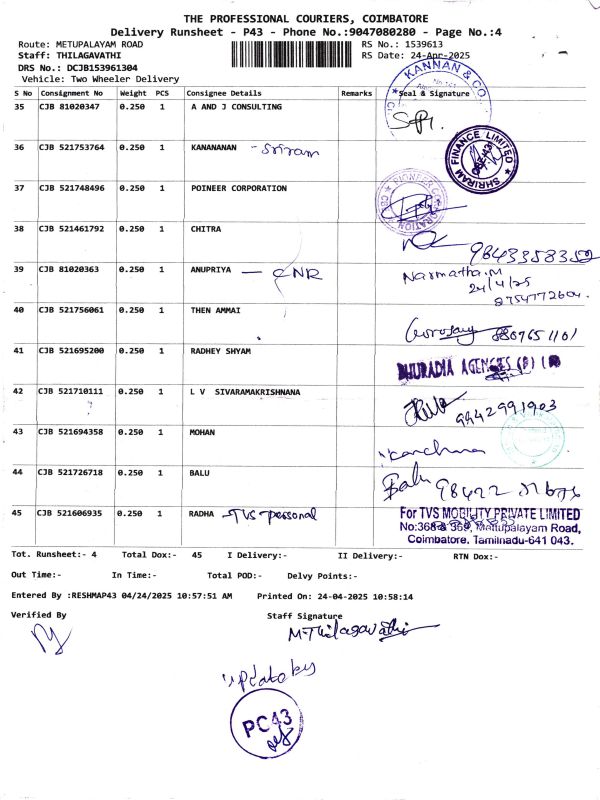 THE PROFESSIONAL COURIERS, COIMBATORE
Delivery Runsheet - P43 - Phone No.:9047080280 - Page No.:4
Route: METUPALAYAM ROAD
RS No.: 1539613
Staff: THILAGAVATHI
RS Date: 24-Apr-2025
DRS No.: DCJB153961304
Vehicle: Two Wheeler Delivery
S No Consignment No Weight PCS Consignee Details Remarks Seal & Signature
KANNAN & CO.
35 CJB 81020347 0.250 1 A AND J CONSULTING
36 CJB 521753764 0.250 1 KANANANAN - Sriram
SHRIRAM FINANCE LIMITED
37 CJB 521748496 0.250 1 POINEER CORPORATION
PIONEER CORPORATION
38 CJB 521461792 0.250 1 CHITRA
9843358352
39 CJB 81020363 0.250 1 ANUPRIYA
Narmatha.M
24/4/25
8754772604
40 CJB 521756061 0.250 1 THEN AMMAI
41 CJB 521695200 0.250 1 RADHEY SHYAM
BHURADIA AGENCIES (P)
42 CJB 521710111 0.250 1 L V SIVARAMAKRISHNANA
9942991903
43 CJB 521694358 0.250 1 MOHAN
Kanchana
44 CJB 521726718 0.250 1 BALU
Balu
45 CJB 521606935 0.250 1 RADHA - TVS personal
For TVS MOBILITY PRIVATE LIMITED
No:368 & 369, Mettupalayam Road,
Coimbatore, Tamilnadu-641 043.
Tot. Runsheet:- 4 Total Dox:- 45 I Delivery:- II Delivery:- RTN Dox:-
Out Time:- In Time:- Total POD:- Delvy Points:-
Entered By :RESHMAP43 04/24/2025 10:57:51 AM Printed On: 24-04-2025 10:58:14
Verified By Staff Signature
M.Thilagavathi
update by
PC43